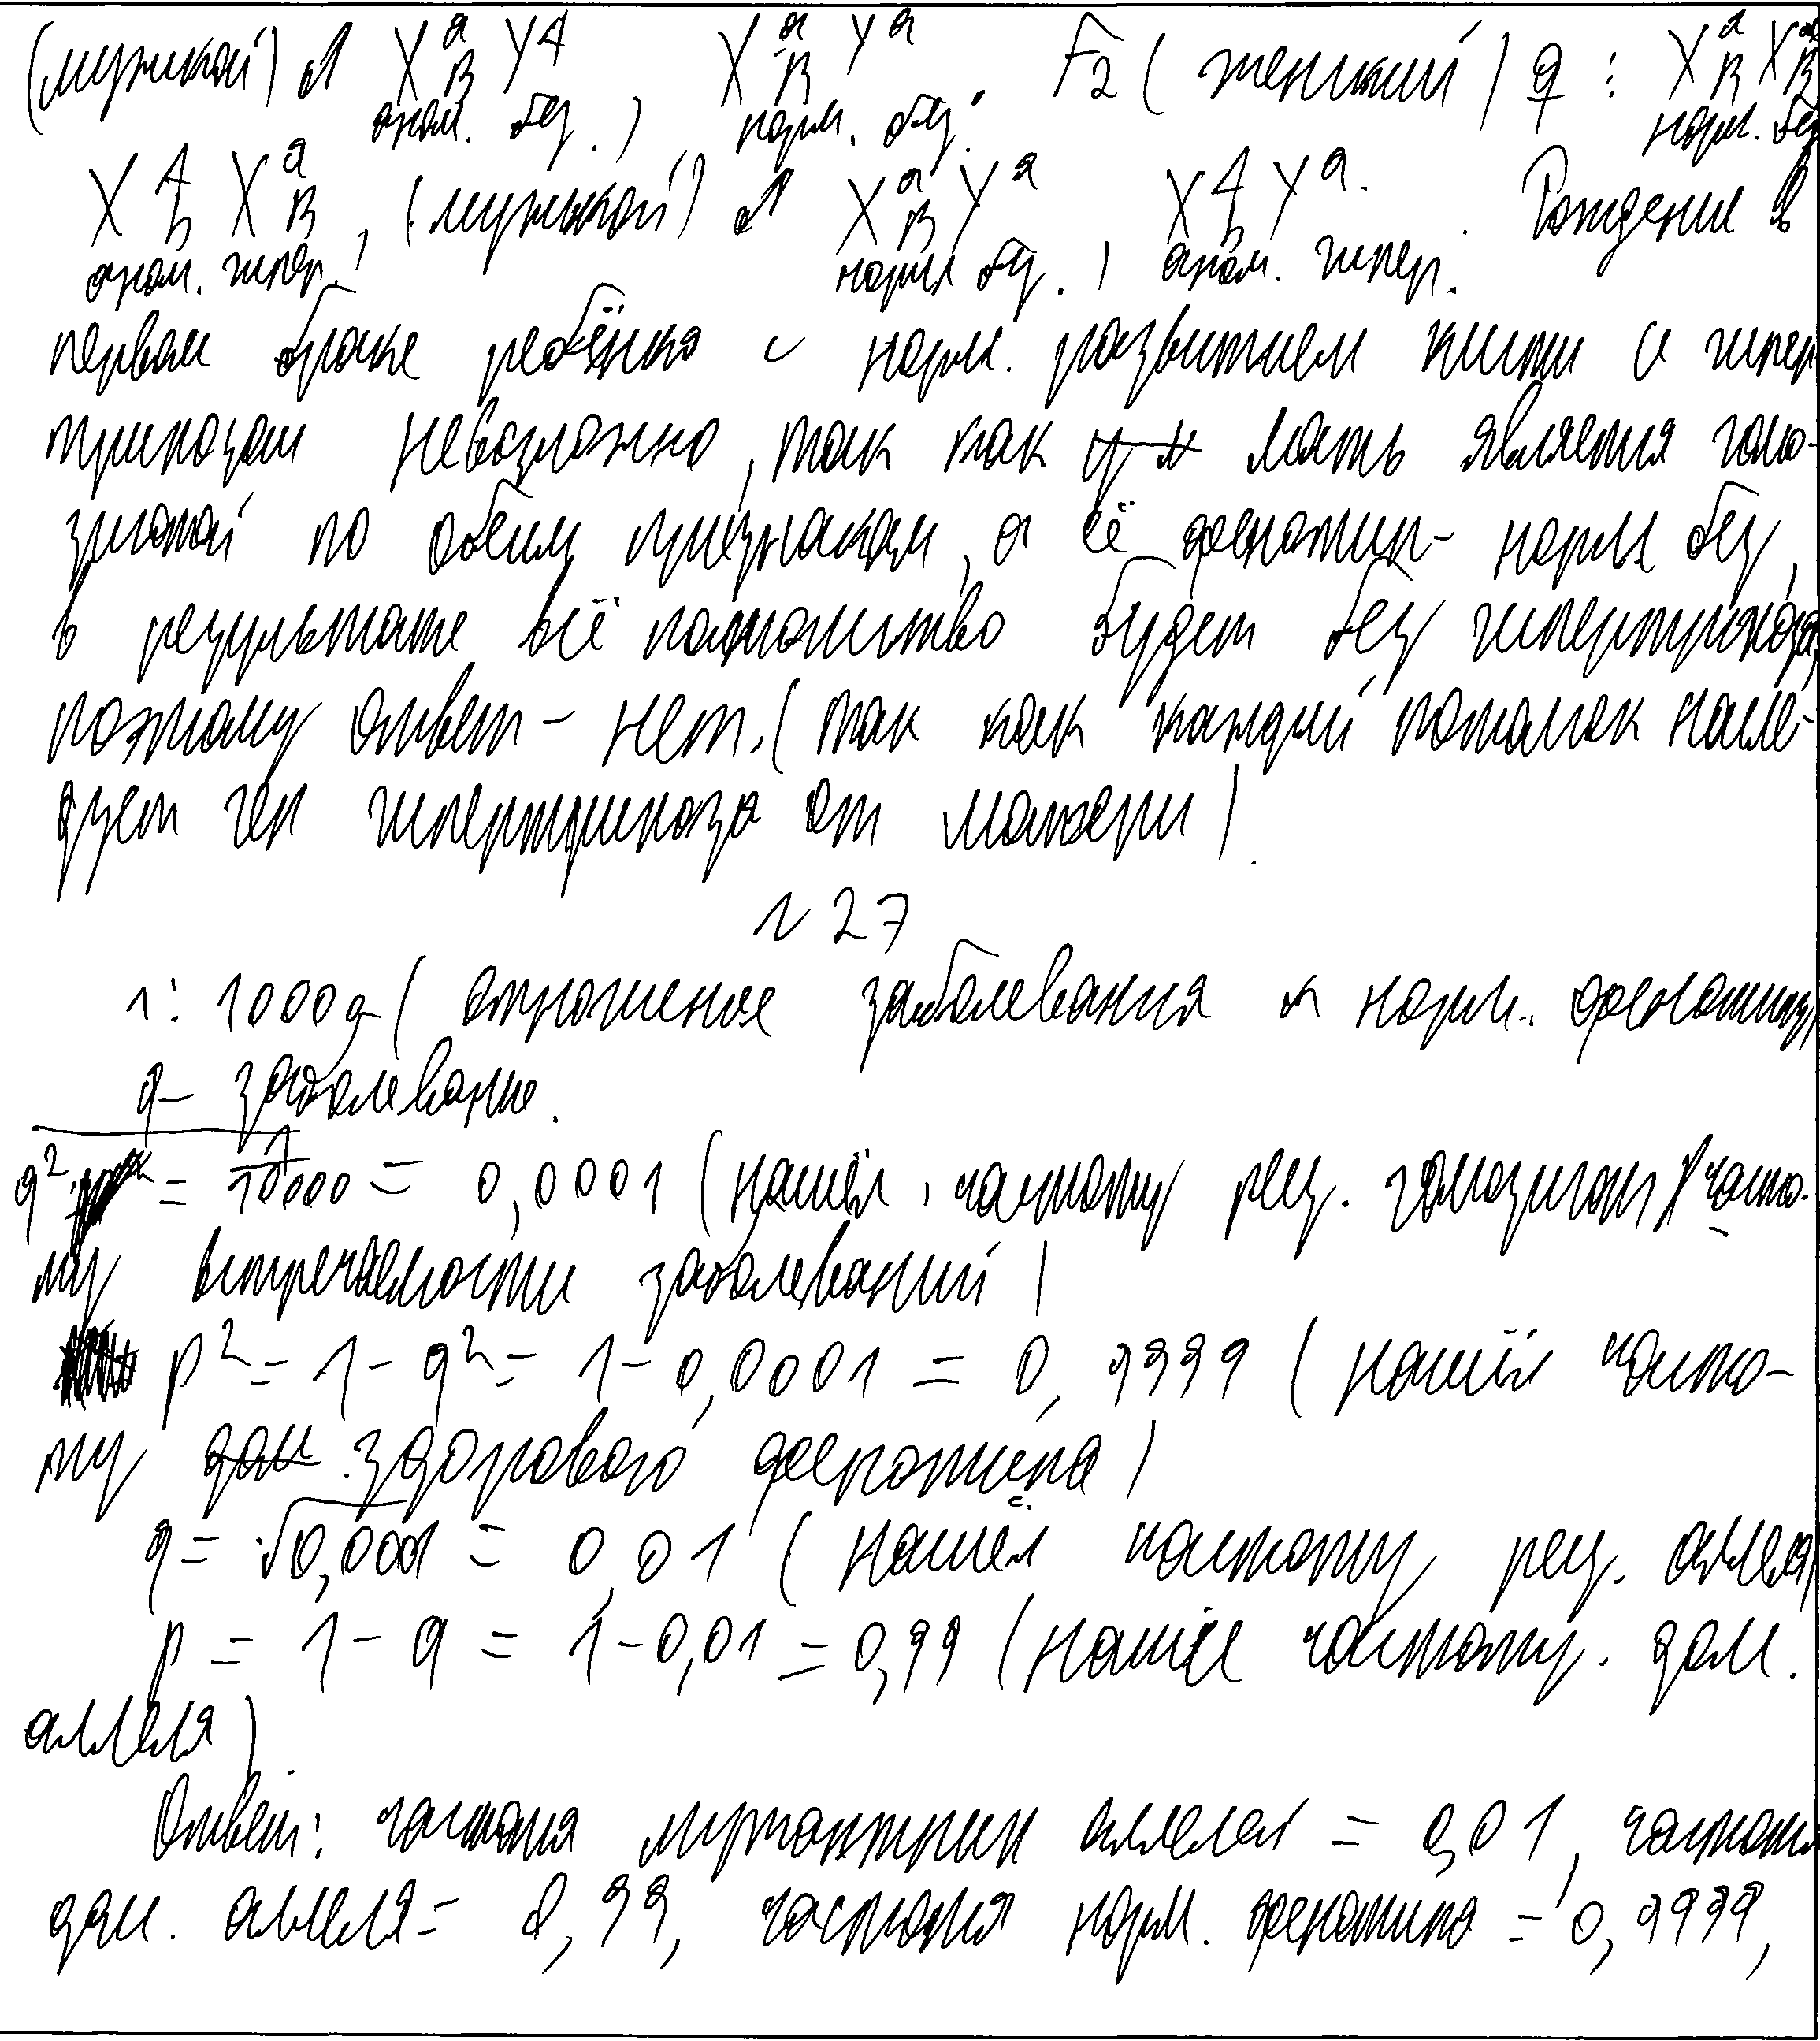 (мужской) ♂ XᵃB Yᴬ XᵃB Yᵃ. F2 (женский) ♀ : XᵃB XᵃB
аном. без., норм. без. норм. без
Xᴬb XᵃB, (мужской) ♂ XᵃB Yᵃ Xᴬb Yᵃ. Рождение в
аном. гипер., норм без., аном. гипер.
первом браке ребёнка с норм. развитием кисти и гипер
трихозом невозможно, так как мать является гомо-
зиготой по обеим признакам, а её фенотип - норм без,
в результате всё потомство будет без гипертрихоза,
поэтому ответ - нет. (так как каждый потомок насле-
дует ген гипертрихоза от матери).
N 27
1: 10000 (отношение заболевания к норм. фенотипу)
q - заболевание.
q² = 1/10000 = 0,0001 (нашёл частоту рец. гомозигот) (часто-
ту встречаемости заболеваний)
p² = 1 - q² = 1 - 0,0001 = 0,9999 (нашёл часто-
ту здорового фенотипа)
q = √0,0001 = 0,01 (нашёл частоту рец. аллеля)
p = 1 - q = 1 - 0,01 = 0,99 (нашёл частоту. дом.
аллеля).
Ответ: частота мутантных аллелей = 0,01, частота
дом. аллеля = 0,99, частота норм. фенотипа = 0,9999,